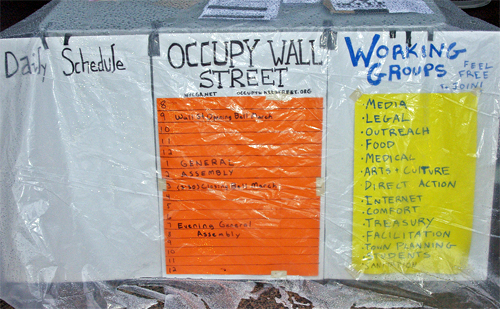 Daily Schedule
OCCUPY WALL
STREET
NYCGA.NET OCCUPYWALLSTREET.ORG
8
9 Wall St. Opening Bell March
10
11
12
1 GENERAL
2 ASSEMBLY
3 (3:30) Closing Bell March
4
5
6
7 Evening General
8 Assembly
9
10
11
12
WORKING
GROUPS
FEEL
FREE
to JOIN!
• MEDIA
• LEGAL
• OUTREACH
• FOOD
• MEDICAL
• ARTS + CULTURE
• DIRECT ACTION
• INTERNET
• COMFORT
• TREASURY
• FACILITATION
• TOWN PLANNING
• STUDENTS
• SANITATION